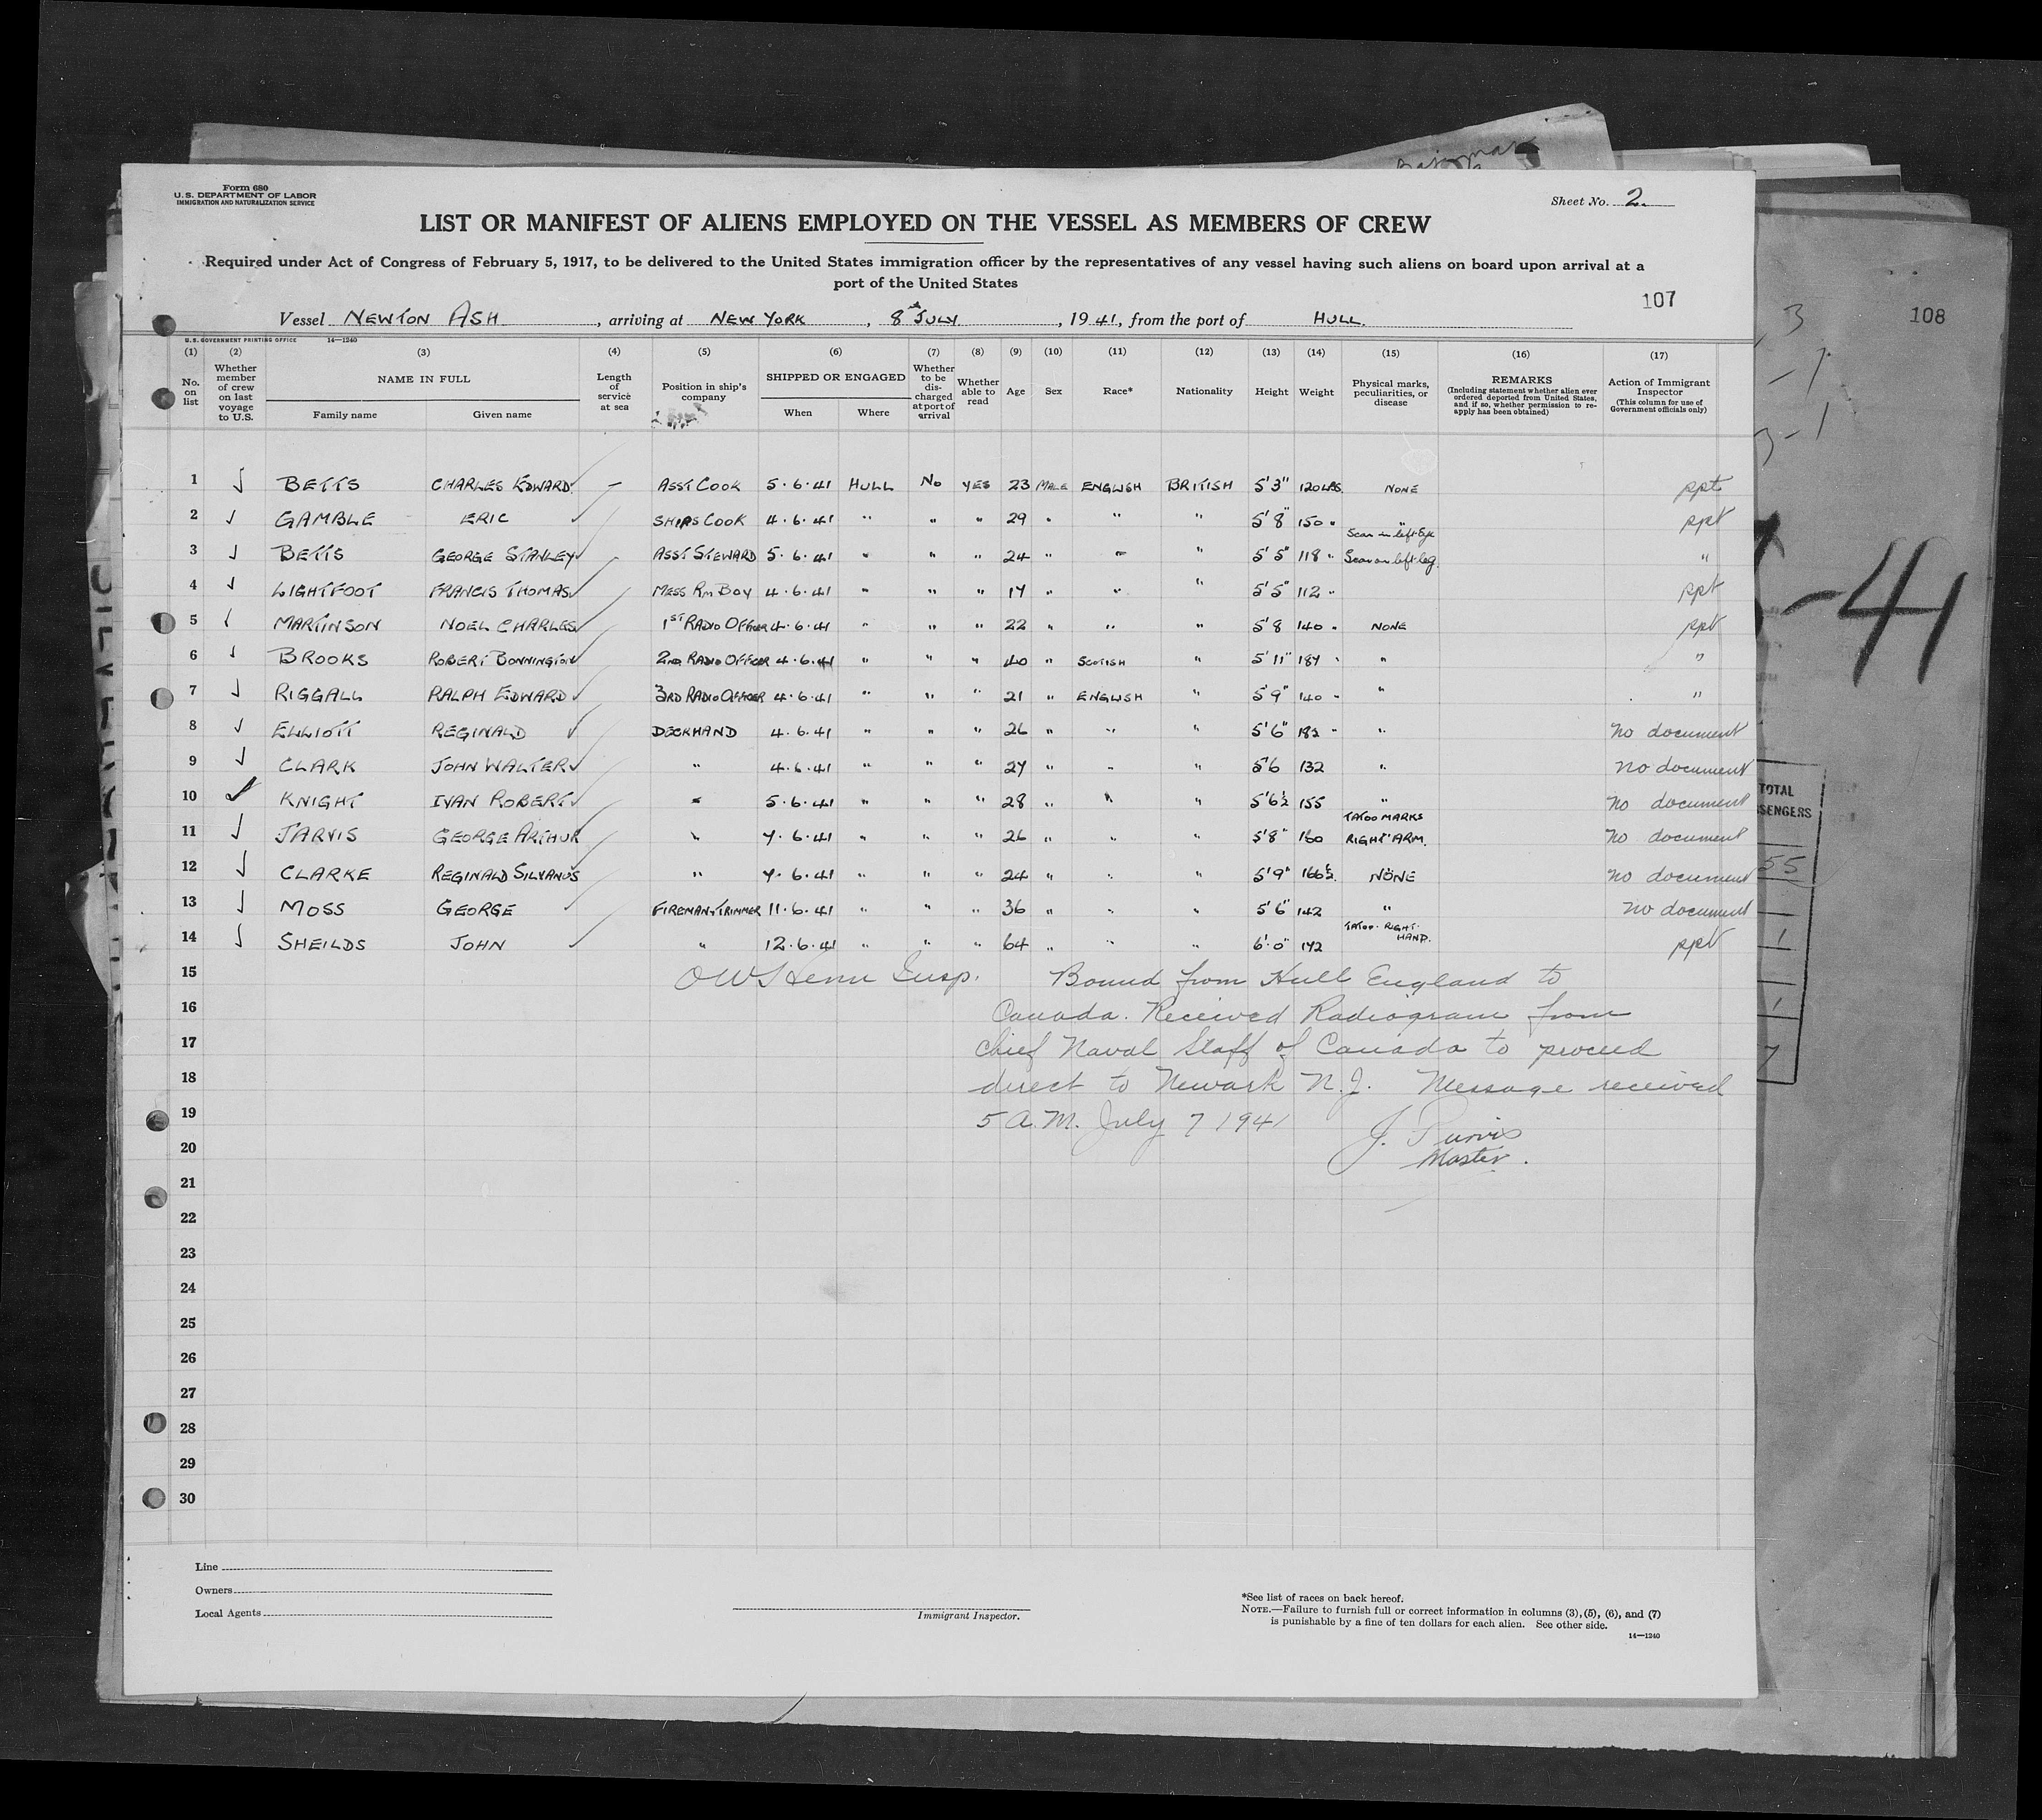 Form 680
U. S. DEPARTMENT OF LABOR
IMMIGRATION AND NATURALIZATION SERVICE
Sheet No. 2.
LIST OR MANIFEST OF ALIENS EMPLOYED ON THE VESSEL AS MEMBERS OF CREW
Required under Act of Congress of February 5, 1917, to be delivered to the United States immigration officer by the representatives of any vessel having such aliens on board upon arrival at a
port of the United States
107
108
Vessel NEWTON ASH, arriving at NEW YORK, 8 JULY, 1941, from the port of HULL.
U. S. GOVERNMENT PRINTING OFFICE 14—1240
(1) (2) (3) (4) (5) (6) (7) (8) (9) (10) (11) (12) (13) (14) (15) (16) (17)
No. on list
Whether member of crew on last voyage to U.S.
NAME IN FULL
Family name
Given name
Length of service at sea
Position in ship's company
SHIPPED OR ENGAGED
When
Where
Whether to be discharged at port of arrival
Whether able to read
Age
Sex
Race*
Nationality
Height
Weight
Physical marks, peculiarities, or disease
REMARKS
(Including statement whether alien ever ordered deported from United States, and if so, whether permission to reapply has been obtained)
Action of Immigrant Inspector
(This column for use of Government officials only)
1 √ BETTS CHARLES EDWARD — ASST COOK 5.6.41 HULL No YES 23 MALE ENGLISH BRITISH 5'3" 120 LBS. NONE ppt
2 √ GAMBLE ERIC SHIPS COOK 4.6.41 " " " 29 " " " 5'8" 150 " Scar in left Eye ppt
3 √ BETTS GEORGE STANLEY ASST STEWARD 5.6.41 " " " 24 " " " 5'5" 118 " Scar on left leg. "
4 √ LIGHTFOOT FRANCIS THOMAS MESS RM BOY 4.6.41 " " " 17 " " " 5'5" 112 " ppt
5 √ MARTINSON NOEL CHARLES 1ST RADIO OFFICER 4.6.41 " " " 22 " " " 5'8 140 " NONE ppt
6 √ BROOKS ROBERT BONNINGTON 2ND RADIO OFFICER 4.6.41 " " " 40 " SCOTISH " 5'11" 187 " " "
7 √ RIGGALL RALPH EDWARD 3RD RADIO OFFICER 4.6.41 " " " 21 " ENGLISH " 5'9" 140 " " "
8 √ ELLIOTT REGINALD DECKHAND 4.6.41 " " " 26 " " " 5'6" 182 " " No document
9 √ CLARK JOHN WALTER " 4.6.41 " " " 27 " " " 5'6 132 " No document
10 √ KNIGHT IVAN ROBERT " 5.6.41 " " " 28 " " " 5'6½ 155 " No document
11 √ JARVIS GEORGE ARTHUR " 7.6.41 " " " 26 " " " 5'8" 160 TATOO MARKS RIGHT ARM. No document
12 √ CLARKE REGINALD SILVANUS " 7.6.41 " " " 24 " " " 5'9" 166½ NONE No document
13 √ MOSS GEORGE FIREMAN & TRIMMER 11.6.41 " " " 36 " " " 5'6" 142 " No document
14 √ SHEILDS JOHN " 12.6.41 " " " 64 " " " 6'.0" 172 TATOO. RIGHT. HAND. ppt
15 Insp. Bound from Hull England to
16 Canada. Received Radiogram from
17 Chief Naval Staff of Canada to proceed
18 direct to Newark N.J. Message received
19 5 A.M. July 7 1941
J. Purvis
20 Master.
21
22
23
24
25
26
27
28
29
30
Line
Owners
Local Agents
Immigrant Inspector.
*See list of races on back hereof.
NOTE.—Failure to furnish full or correct information in columns (3), (5), (6), and (7)
is punishable by a fine of ten dollars for each alien. See other side.
14—1240
-41
TOTAL
SENGERS
55
1
1
7